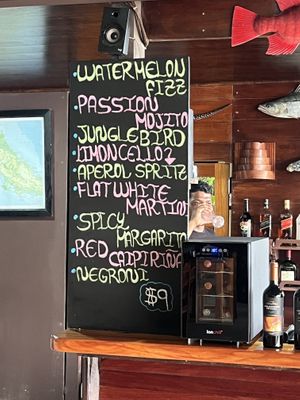 WATERMELON
FIZZ
PASSION
MOJITO
JUNGLEBIRD
LIMONCELLO
APEROL SPRITZ
FLAT WHITE
MARTINI
SPICY
MARGARITA
RED CAIPIRIÑA
NEGRONI
$9